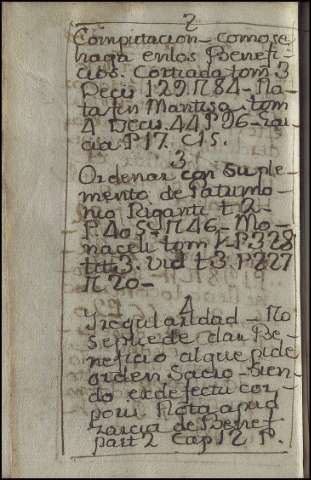 2
Computacion - como se
haga en los Benefi-
cios. Cortiada tom 3
Decis 129 N 84 - No-
ta en Mantisa tom
4 Decis. 44 P 96 - Gar-
cia P 17. C 15.
3
Ordenar con Suple-
mento de Patrimo-
nio Riganti t 2 -
P. 405 N 46 - Mo-
naceli tom P 328
3. Vid t 3. P 227
N 20 -
4
Yregularidad - No
se puede dar Be-
neficio al que pide
orden Sacro - Sien-
do ex defectu cor-
poris. Nota apud
Garcia de Benef
part 2 Cap 12 P.